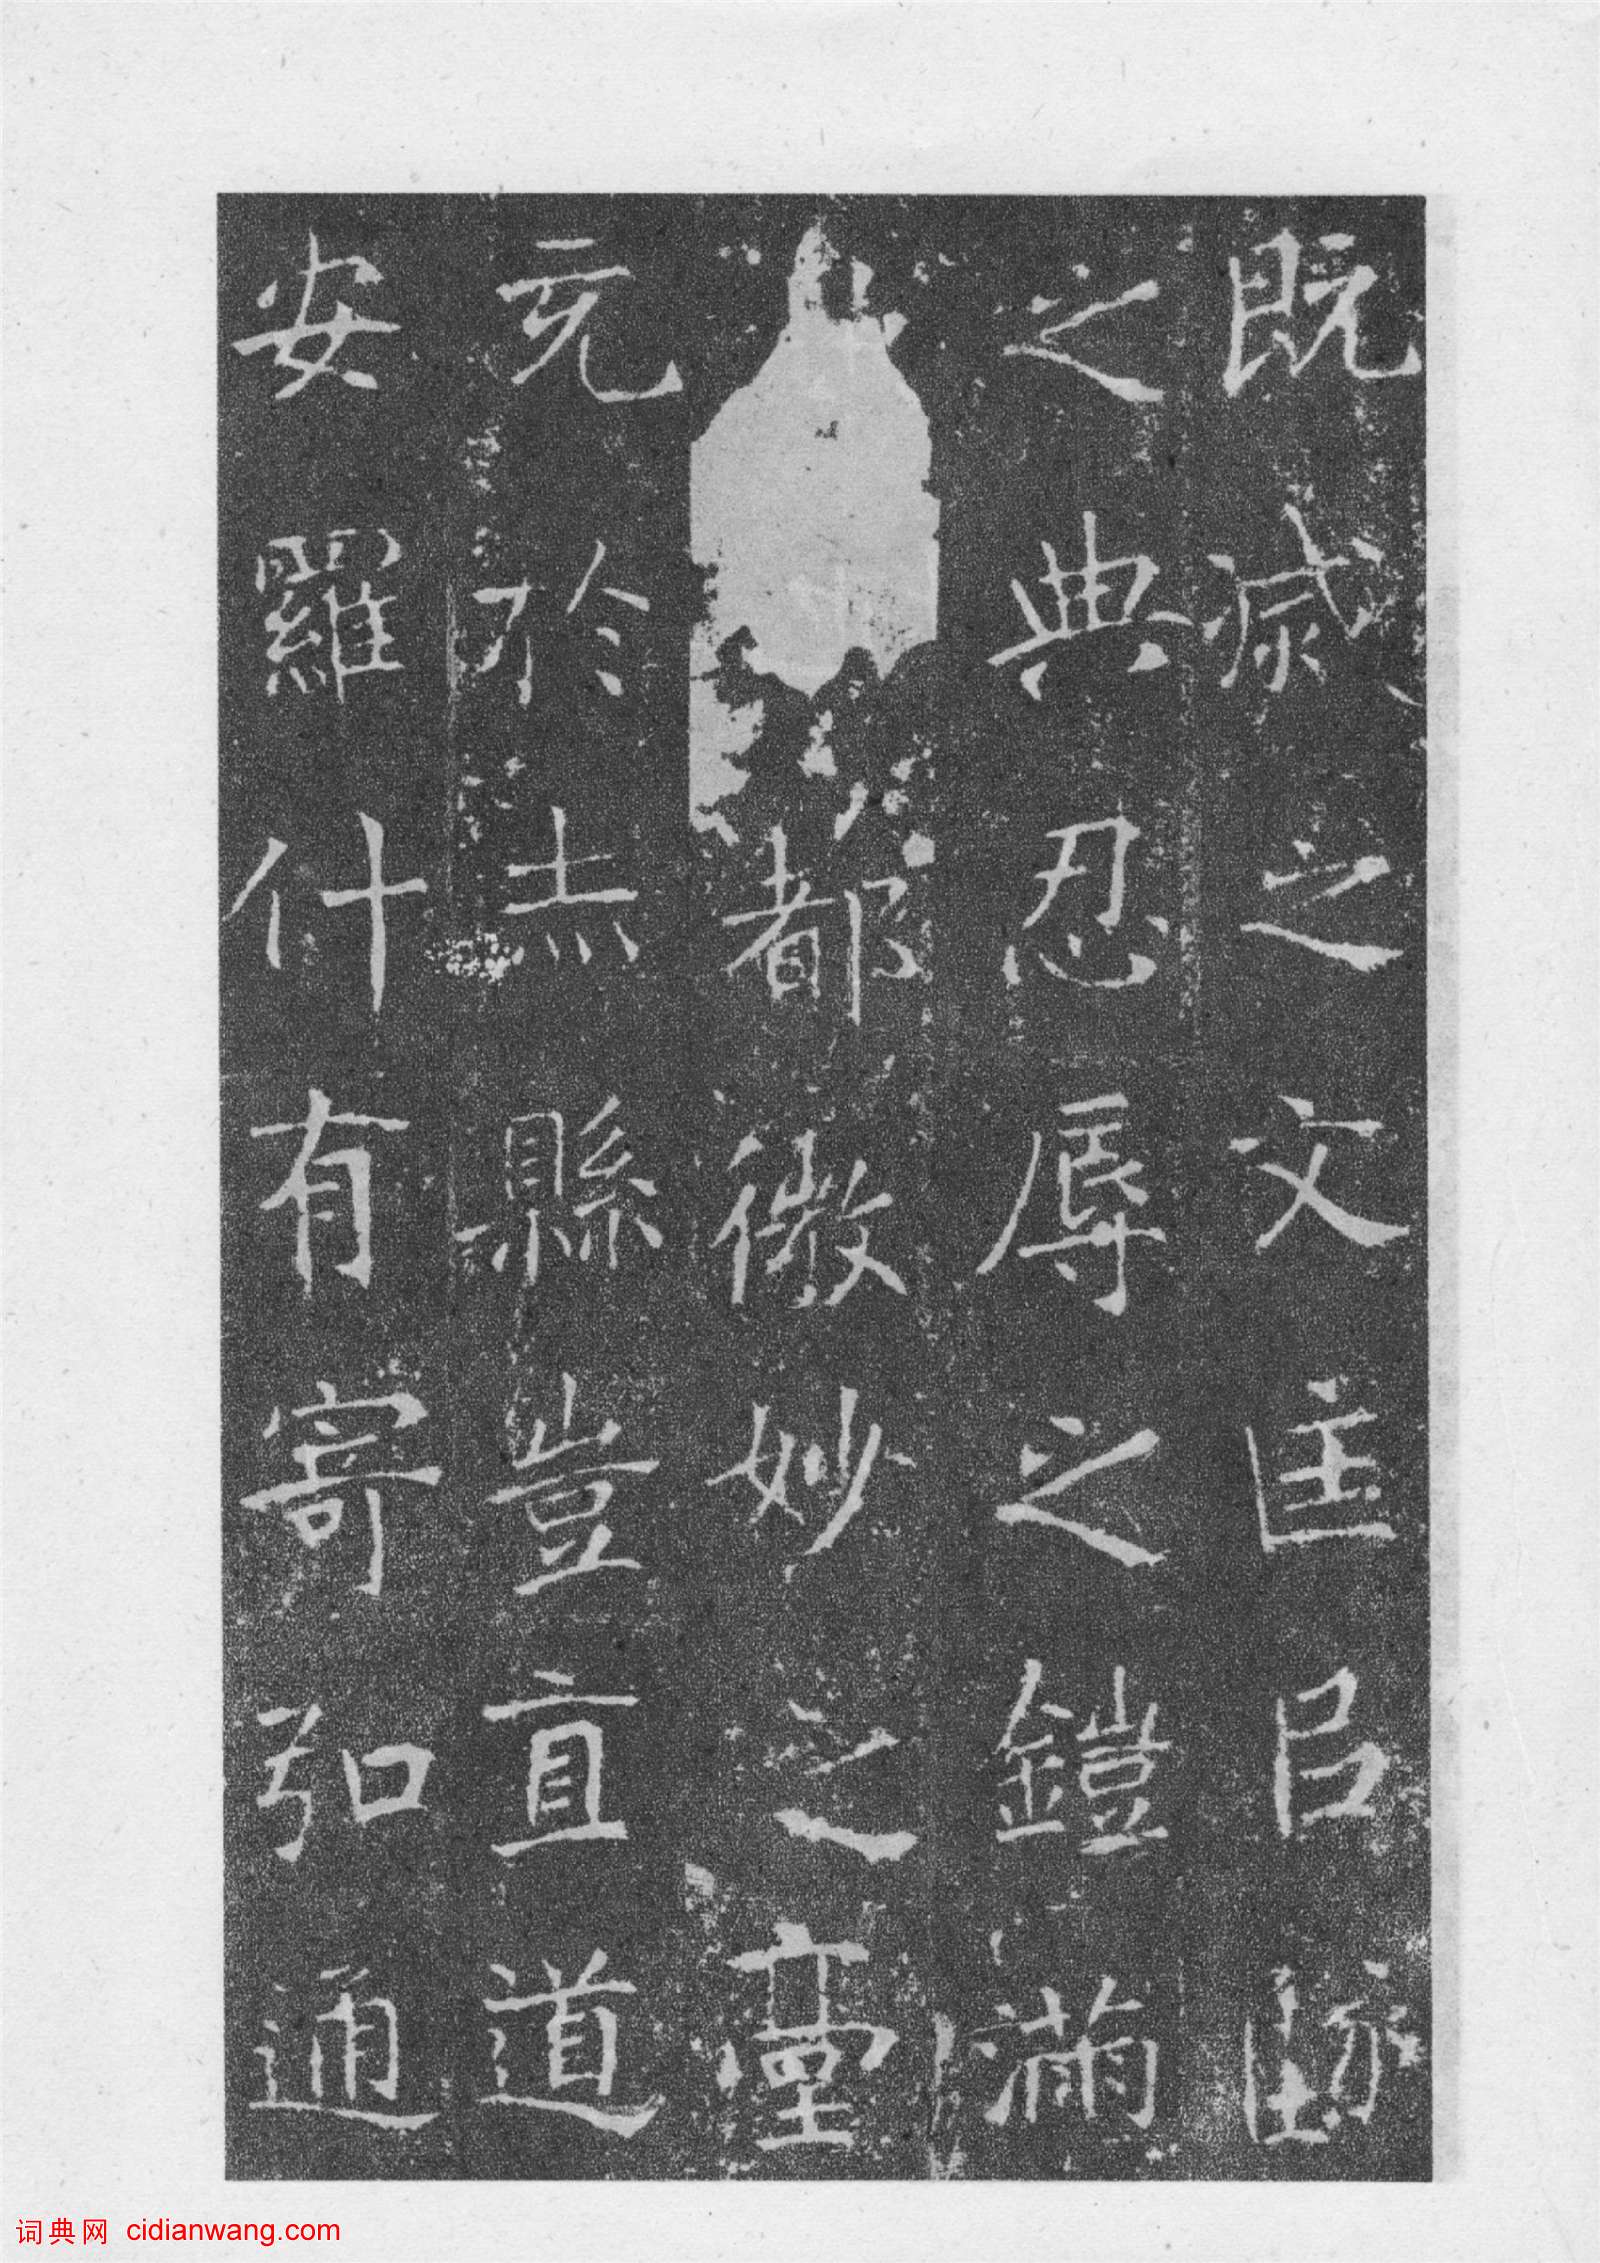 既滅之文匡已墜
之典忍辱之鎧滿
都微妙之臺
充於赤縣豈直道
安羅什有寄弘通
词典网 cidianwang.com